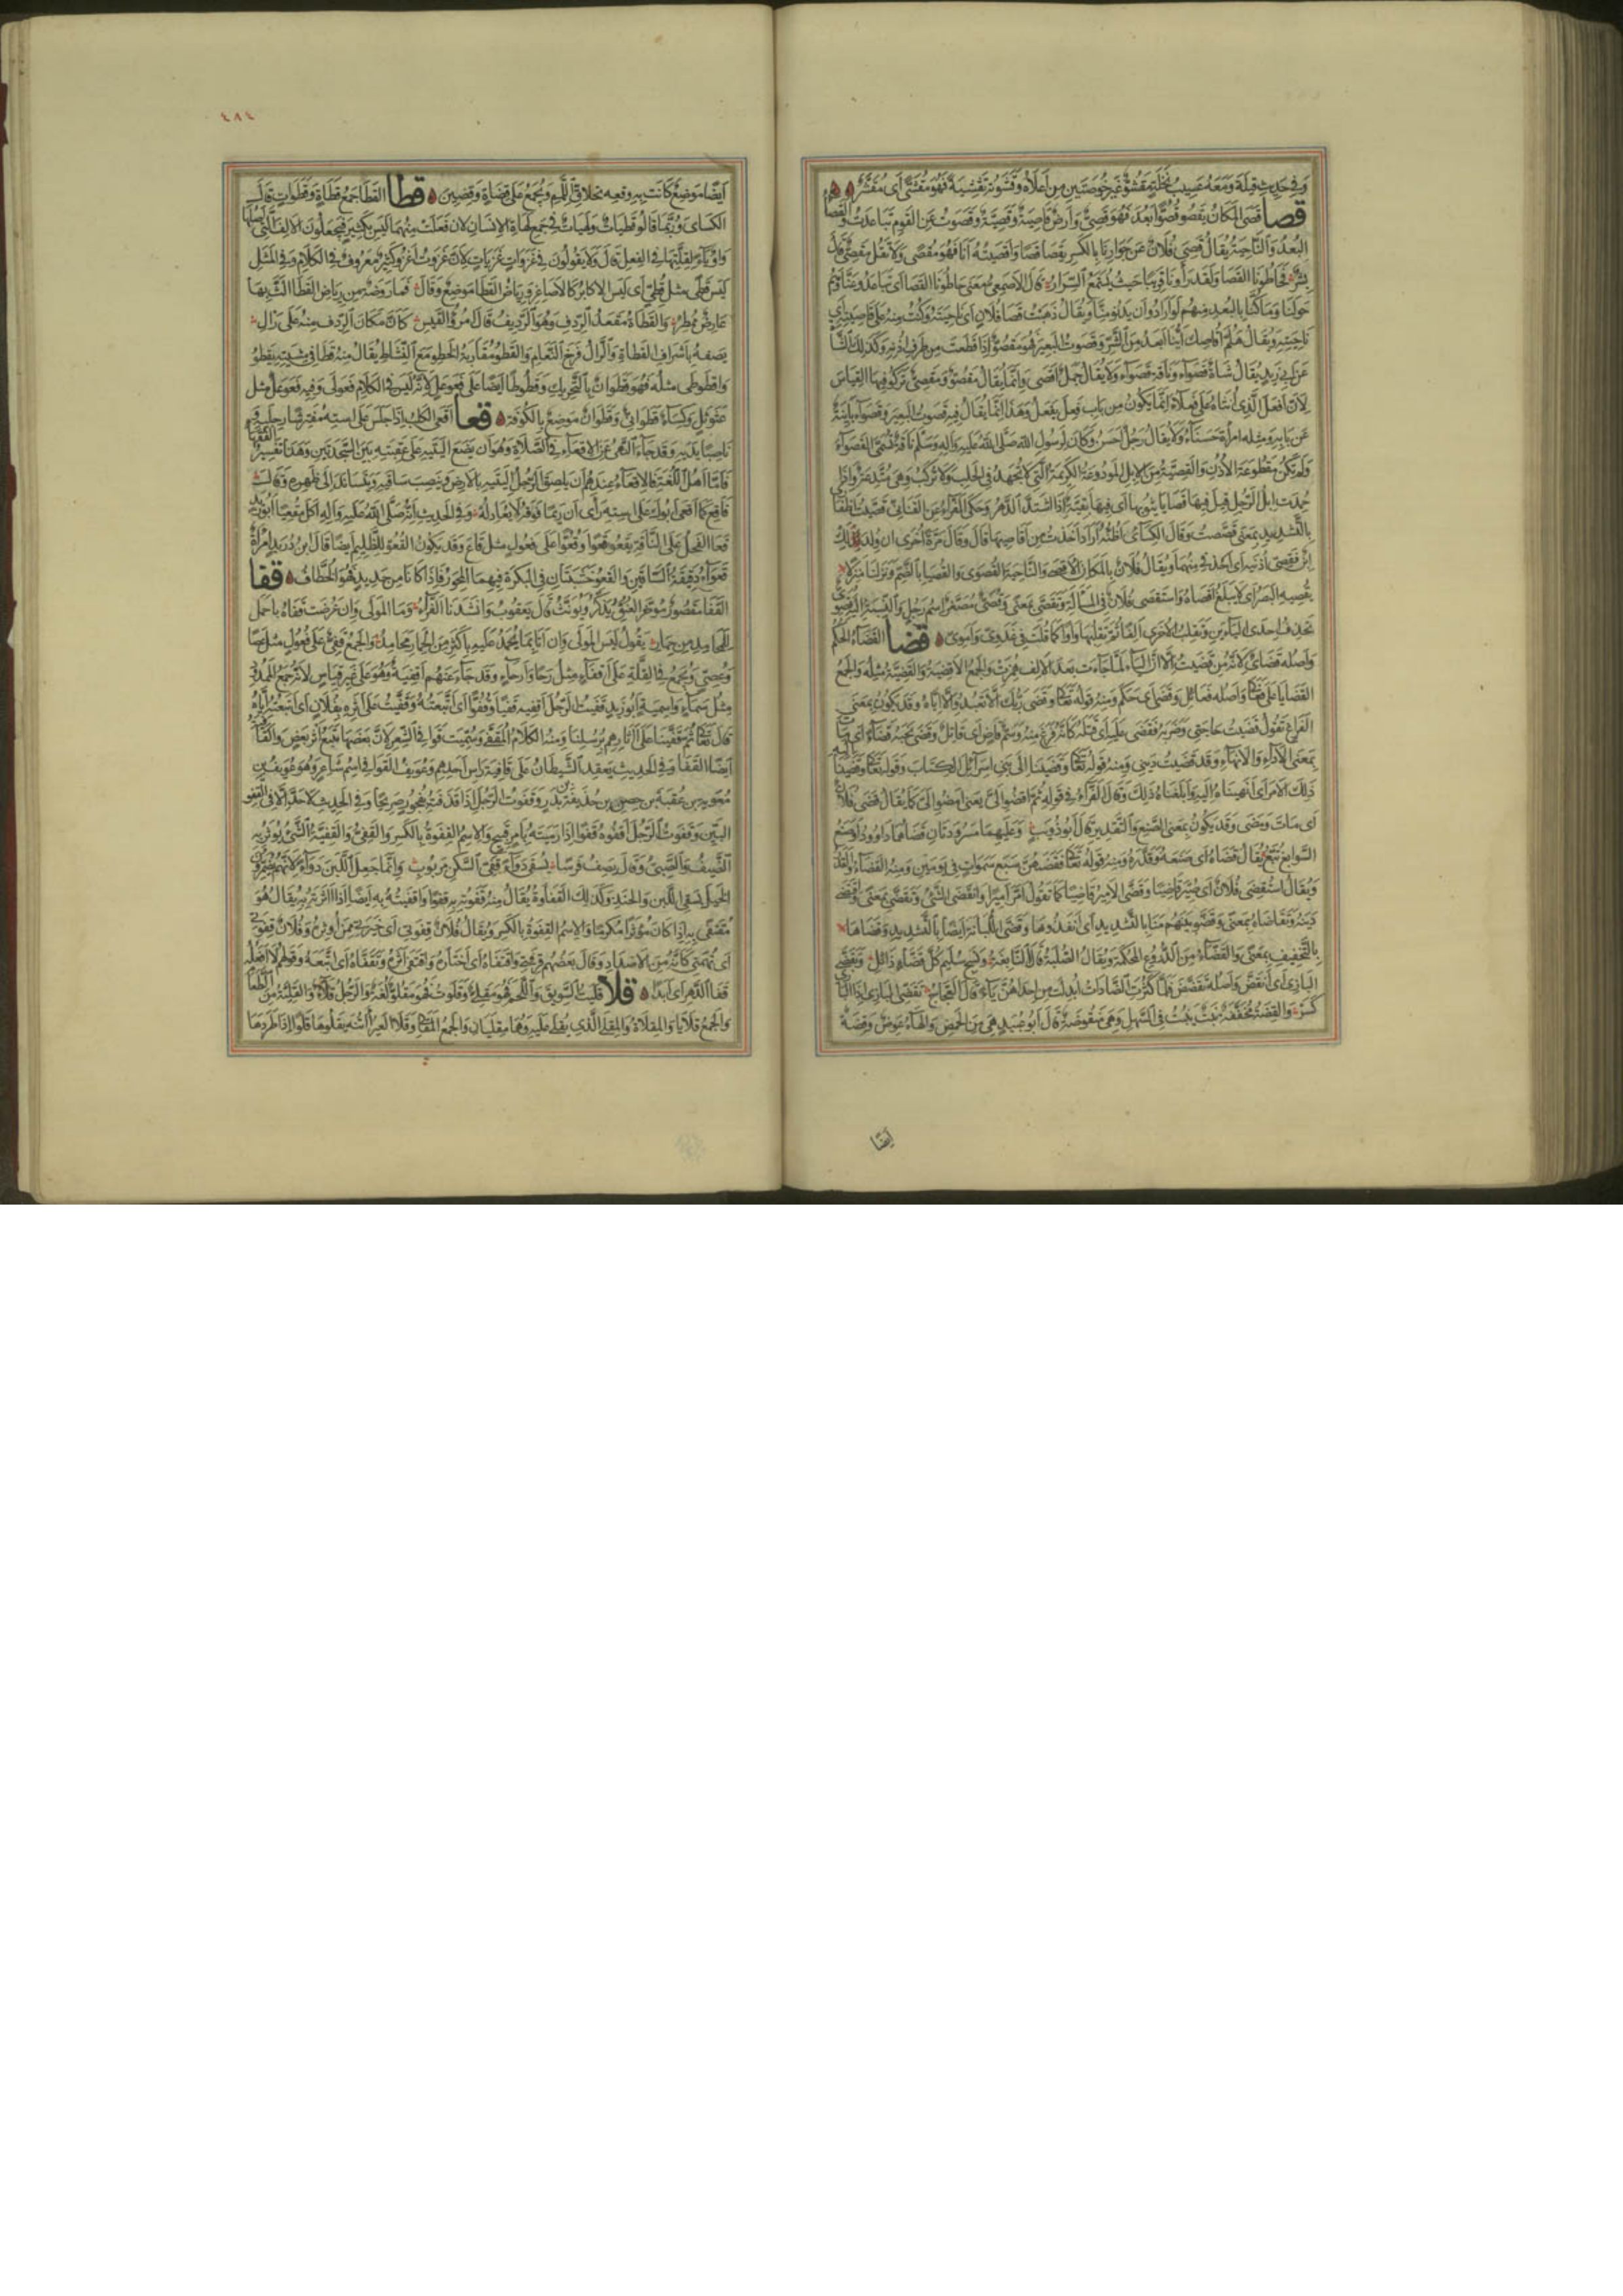 وفي حديث قيلة ومعه عسيب نخلة مقشو غير خوصتين من أعلاه وقشوته تقشية فهو مقشى أي مقشر
قصا قصى المكان يقصو قصوا بعد فهو قصي وأرض قاصية وقصية وقصوت عن القوم تباعدت والقصا
البعد والناحية يقال قصي فلان عن جوارنا بالكسر يقصا قصا وأقصيته أنا فهو مقصى ولا تقل مقصي قال
بشر فحاطونا القصا ولقد رأونا قريبا حيث يستمع السرار قال الأصمعي معنى حاطونا القصا أي تباعدوا عنا وهم
حولنا وما كنا بالبعد منهم لو أرادوا أن يدنوا منا ويقال ذهبت قصا فلان أي ناحيته وكنت منه على قاصيته أي
ناحيته ويقال هلم أقاصك أينا أبعد من الشر وقصوت البعير فهو مقصو إذا قطعت من طرف أذنه وكذلك الشاة
عن أبي زيد يقال شاة قصواء وناقة قصواء ولا يقال جمل أقصى وإنما يقال مقصو ومقصى تركوا فيها القياس
لأن أفعل الذي أنثاه على فعلاء إنما يكون من باب فعل يفعل وهذا إنما يقال فيه قصوت البعير وقصواء بائنة
عن بابه ومثله امرأة حسناء ولا يقال رجل أحسن وكان لرسول الله صلى الله عليه وآله وسلم ناقة تسمى القصواء
ولم تكن مقطوعة الأذن والقصية من الإبل المودوعة الكريمة التي لا تجهد في الحلب ولا تركب وهي متدعة وإذا
حمدت إبل الرجل قيل فيها قصايا يثق بها أي فيها بقية إذا اشتد الدهر وحكى الفراء عن القناني قصيت أظفاري
بالتشديد بمعنى قصصت وقال الكسائي أظنه أراد أخذت من أقاصيها قال وقال مرة أخرى إن ولد لك
ابن فقصي أذنيه أي احذفي منهما ويقال فلان بالمكان الأقصى والناحية القصوى والقصيا بالضم ونزلنا منزلا
يقصيه البصر أي لا يبلغ أقصاه واستقصى فلان في المسألة وتقصى بمعنى وقصي مصغر اسم رجل والنسبة إليه قصوي
تحذف إحدى الياءين وتقلب الأخرى ألفا ثم تقلبها واوا كما قلت في عدوي وأموي قضا القضاء الحكم
وأصله قضاي لأنه من قضيت إلا أن الياء لما جاءت بعد الألف همزت والجمع الأقضية والقضية مثله والجمع
القضايا على فعالى وأصله فعائل وقضى أي حكم ومنه قوله تعالى وقضى ربك ألا تعبدوا إلا إياه وقد يكون بمعنى
الفراغ تقول قضيت حاجتي وضربه فقضى عليه أي قتله كأنه فرغ منه وسم قاض أي قاتل وقضى نحبه قضاء أي مات
بمعنى الأداء والإنهاء وقد قضيت ديني ومنه قوله تعالى وقضينا إلى بني إسرائيل في الكتاب وقوله تعالى وقضينا إليه
ذلك الأمر أي أنهيناه إليه وأبلغناه ذلك وقال الفراء في قوله ثم اقضوا إلي يعني امضوا إلي كما يقال قضى فلان
أي مات ومضى وقد يكون بمعنى الصنع والتقدير قال أبو ذؤيب وعليهما مسرودتان قضاهما داوود أو صنع
السوابغ تبع يقال قضاه أي صنعه وقدره ومنه قوله تعالى فقضاهن سبع سموات في يومين ومنه القضاء والقدر
ويقال استقضى فلان أي صير قاضيا وقضى الأمير قاضيا كما تقول أمر أميرا وانقضى الشيء وتقضى بمعنى واقتضى
دينه وتقاضاه بمعنى وقضوا بينهم منايا بالتشديد أي أنفذوها وقضى اللبانة أيضا بالتشديد وقضاها
بالتخفيف بمعنى والقضاء من الدروع المحكمة ويقال الصلبة قال النابغة ونسج سليم كل قضاء ذائل وتقضى
البازي أي انقض وأصله تقضض فلما كثرت الضادات أبدلت من إحداهن ياء قال العجاج تقضي البازي إذا البازي
كسر والقضة مخففة نبت ينبت في السهل وهي منقوصة قال أبو عبيد هي من الحمض والهاء عوض وقضة
أيضا
٤٨٤
أيضا موضع كانت به وقعة تحلاق اللمم ويجمع على قضاة وقضين قطا القطا جمع قطاة وقطوات قال
الكسائي وربما قالوا قطيات ولهيات في جمع لهاة الإنسان لأن فعلت منهما ليس بكثير فيجعلون الألف التي أصلها
واو ياء لقلتها في الفعل قال ولا يقولون في غزوات غزيات لأن غزوت أغزو كثير معروف في الكلام وفي المثل
ليس قطا مثل قطي أي ليس الأكابر كالأصاغر ورياض القطا موضع وقال فما روضة من رياض القطا ألث بها
عارض ممطر والقطاة مقعد الردف وهو الرديف قال امرؤ القيس كأن مكان الردف منه على رال
يصفه بإشراف القطاة والرال فرخ النعام والقطو مقاربة الخطو مع النشاط يقال منه قطا في مشيته يقطو
واقطوطى مثله فهو قطوان بالتحريك وقطوطا أيضا على فعوعل لأنه ليس في الكلام فعولى وفيه فعوعل مثل
عثوثل وكساء قطواني وقطوان موضع بالكوفة قعا أقعى الكلب إذا جلس على استه مفترشا رجليه
ناصبا يديه وقد جاء النهي عن الإقعاء في الصلاة وهو أن يضع أليتيه على عقبيه بين السجدتين وهذا تفسير الفقهاء
فأما أهل اللغة فالإقعاء عندهم أن يلصق الرجل أليتيه بالأرض وينصب ساقيه ويتساند إلى ظهره وقال
فأقع كما أقعى أبوك على استه رأى أن ريما فوقه لا يعادله وفي الحديث أنه صلى الله عليه وآله أكل مقعيا أبو زيد
قعا الفحل على الناقة يقعو قعوا وقعوا على فعول مثل قاع وقد يكون القعو للظليم أيضا قال ابن دريد امرأة
قعواء دقيقة الساقين والقعو خشبتان في البكرة فيهما المحور فإذا كانا من حديد فهو الخطاف قفا
القفا مقصور مؤخر العنق يذكر ويؤنث قال يعقوب وأنشدنا الفراء وما المولى وإن عرضت قفاه بأحمل
للمحامد من حمار يقول ليس المولى وإن أتى بما يحمد عليه بأكثر من الحمار محامد والجمع قفي على فعول مثل عصا
وعصي ويجمع في القلة على أقفاء مثل رحا وأرحاء وقد جاء عنهم أقفية وهو على غير قياس لأنه جمع الممدود
مثل سماء وأسمية أبو زيد قفيت الرجل أقفيه قفيا وقفوا أي أتبعته وقفيت على أثره بفلان أي أتبعته إياه
قال تعالى ثم قفينا على آثارهم برسلنا ومنه الكلام المقفى وسميت قوافي الشعر لأن بعضها يتبع أثر بعض والقافية
أيضا القفا وفي الحديث يعقد الشيطان على قافية رأس أحدهم وعويف القوافي اسم شاعر وهو عويف بن
معوية بن عقبة بن حصن بن حذيفة بن بدر وقفوت الرجل إذا قذفته بفجور صريحا وفي الحديث لا حد إلا في القفو
البين وقفوت الرجل أقفوه قفوا إذا رميته بأمر قبيح والاسم القفوة بالكسر والقفي والقفية الشيء يؤثر به
الضيف والصبي وقال يصف فرسا يسقى دواء قفي السكن مربوب وإنما جعل اللبن دواء لأنهم يضمرون
الخيل بسقي اللبن والحنذ وكذلك القفاوة يقال منه قفوته به قفوا وأقفيته به أيضا إذا آثرته به يقال هو
مقتفى به إذا كان مؤثرا مكرما والاسم القفوة بالكسر ويقال فلان قفوتي أي خيرتي ممن أوثره وفلان قفوتي
أي تهمتي كأنه من الأضداد وقال بعضهم قرفتي واقتفاه أي اختاره واقتفى أثره وتقفاه أي اتبعه وقولهم لا أفعله
قفا الدهر أي أبدا قلا قليت السويق واللحم فهو مقلي وقلوت فهو مقلو لغة والرجل قلاء والقلية من الطعام
والجمع قلايا والمقلاة والمقلى الذي يقلى عليه وهما مقليان والجمع المقالي وقلا العير أتنه يقلوها قلوا إذا طردها